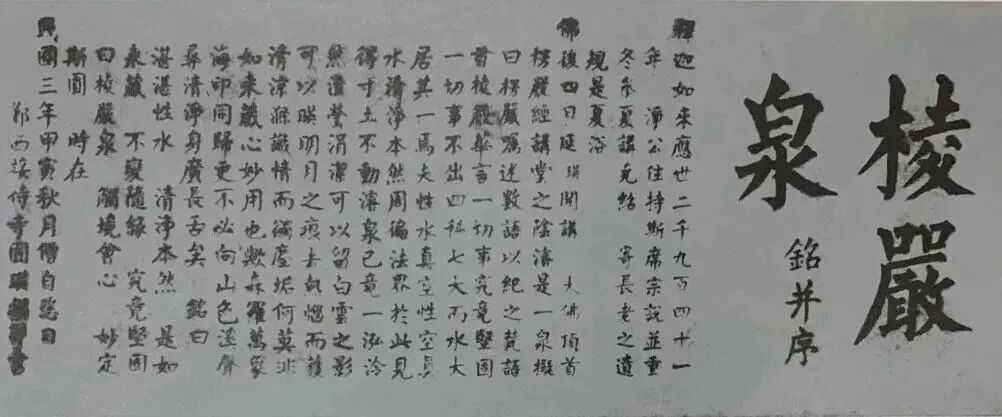 棱嚴
泉
銘并序
釋迦如來應世二千九百四十一
年 淨公住持斯席宗說並重
冬參夏講克紹 寄長老之遺
規是夏浴
佛後四日延瑛開講 大佛頂首
楞嚴經講堂之陰濬是一泉擬
曰楞嚴囑述數語以紀之梵語
首棱嚴華言一切事究竟堅固
一切事不出四科七大而水大
居其一焉夫性水真空性空真
水清淨本然周徧法界於此見
得寸土不動濬泉已竟一泓泠
然澄瑩涓潔可以留白雲之影
可以暎明月之痕去飢惱而獲
清涼滌識情而礪塵垢何莫非
如來藏心妙用也歟森羅萬象
海印同歸更不必向山色溪聲
尋清淨身廣長舌矣 銘曰
湛湛性水 清淨本然 是如
來藏 不變隨緣 究竟堅固
曰棱嚴泉 觸境會心 妙定
斯圓 時在
民國三年甲寅秋月僧自恣日
鄮西接待寺圓瑛